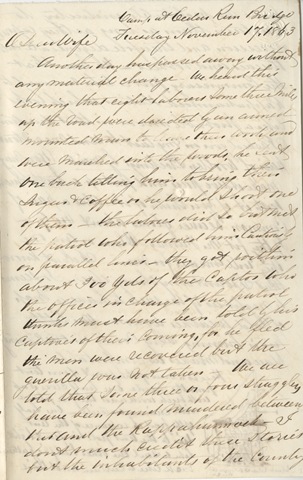 Camp at Cedar Run Bridge
Tuesday November 17, 1863
Dear Wife
Another day has passed away without
any material change We heard this
evening that eight laborers some three miles
up the road were decoyed by an armed
mounted man to leave their work and
were marched into the woods, he sent
one back telling him to bring their
Sugar & Coffee or he would shoot one
of them — the laborer did so but met
the patrol who followed him cautiously
on parallel lines — they got position
about 300 yds of the Captor who
the officer in charge of the patrol
thinks must have been told by his
Captives of their coming, for he fled
the men were recovered but the
guerilla was not taken We are
told that some three or four stragglers
have been found murdered between
this and the Rappahannock I
don't much credit these stories
but the inhabitants of the Country